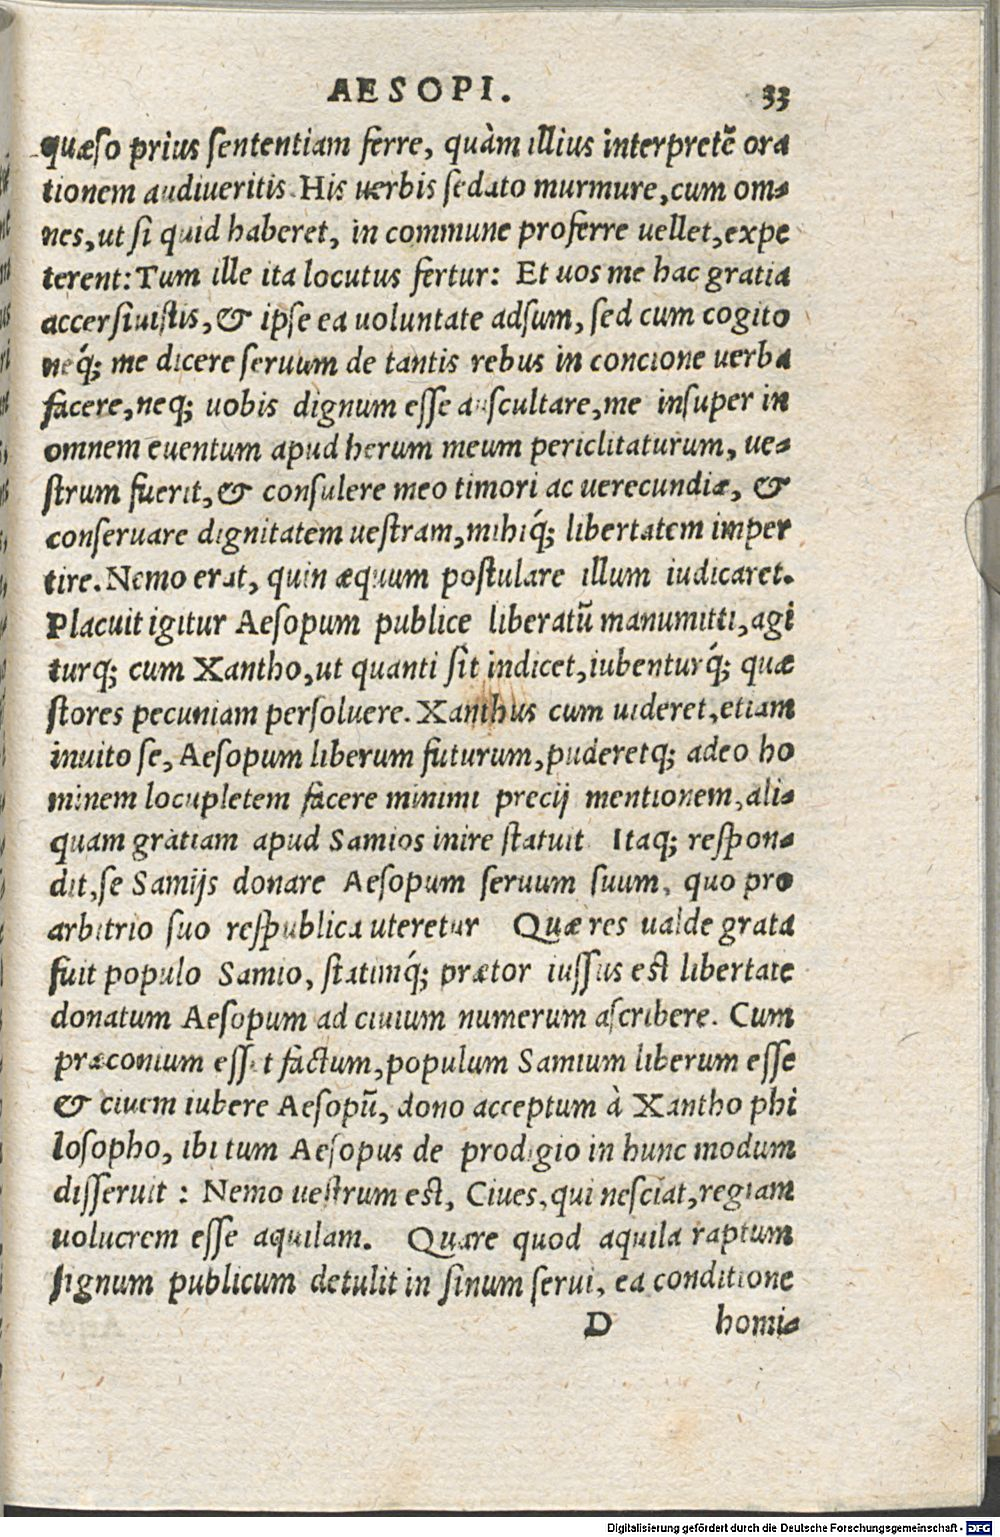 AESOPI. 33
quæso prius sententiam ferre, quàm illius interpretē ora
tionem audiueritis. His uerbis sedato murmure, cum om-
nes, ut si quid haberet, in commune proferre uellet, expe
terent: Tum ille ita locutus fertur: Et uos me hac gratia
accersiuistis, & ipse ea uoluntate adsum, sed cum cogito
neq́; me dicere seruum de tantis rebus in concione uerba
facere, neq; uobis dignum esse auscultare, me insuper in
omnem euentum apud herum meum periclitaturum, ue-
strum fuerit, & consulere meo timori ac uerecundiæ, &
conseruare dignitatem uestram, mihiq́; libertatem imper
tire. Nemo erat, quin æquum postulare illum iudicaret.
Placuit igitur Aesopum publice liberatū manumitti, agi
turq; cum Xantho, ut quanti sit indicet, iubenturq́; quæ
stores pecuniam persoluere. Xanthus cum uideret, etiam
inuito se, Aesopum liberum futurum, puderetq; adeo ho
minem locupletem facere minimi precij mentionem, ali-
quam gratiam apud Samios inire statuit Itaq; respon-
dit, se Samijs donare Aesopum seruum suum, quo pro
arbitrio suo respublica uteretur Quæ res ualde grata
fuit populo Samio, statimq́; prætor iussus est libertate
donatum Aesopum ad ciuium numerum ascribere. Cum
præconium esset factum, populum Samium liberum esse
& ciuem iubere Aesopū, dono acceptum à Xantho phi
losopho, ibi tum Aesopus de prodigio in hunc modum
disseruit : Nemo uestrum est, Ciues, qui nesciat, regiam
uolucrem esse aquilam. Quare quod aquila raptum
signum publicum detulit in sinum serui, ea conditione
D homi-
Digitalisierung gefördert durch die Deutsche Forschungsgemeinschaft - DFG